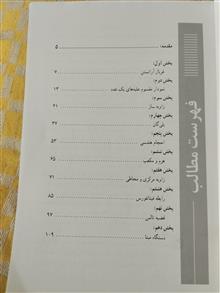 فهرست مطالب
مقدمه: ۵
بخش اول:
غربال آراستن ۷
بخش دوم:
نمودار مقسوم علیه‌های یک عدد ۱۳
بخش سوم:
زاویه ساز ۲۱
بخش چهارم:
۳۷
بخش پنجم:
احجام هندسی ۵۳
بخش ششم:
هرم و مکعب ۶۵
بخش هفتم:
زاویه مرکزی و محاطی ۷۱
بخش هشتم:
رابطه فیثاغورس ۸۵
بخش نهم:
قضیه تالس ۹۷
بخش دهم:
دستگاه مبنا ۱۰۹